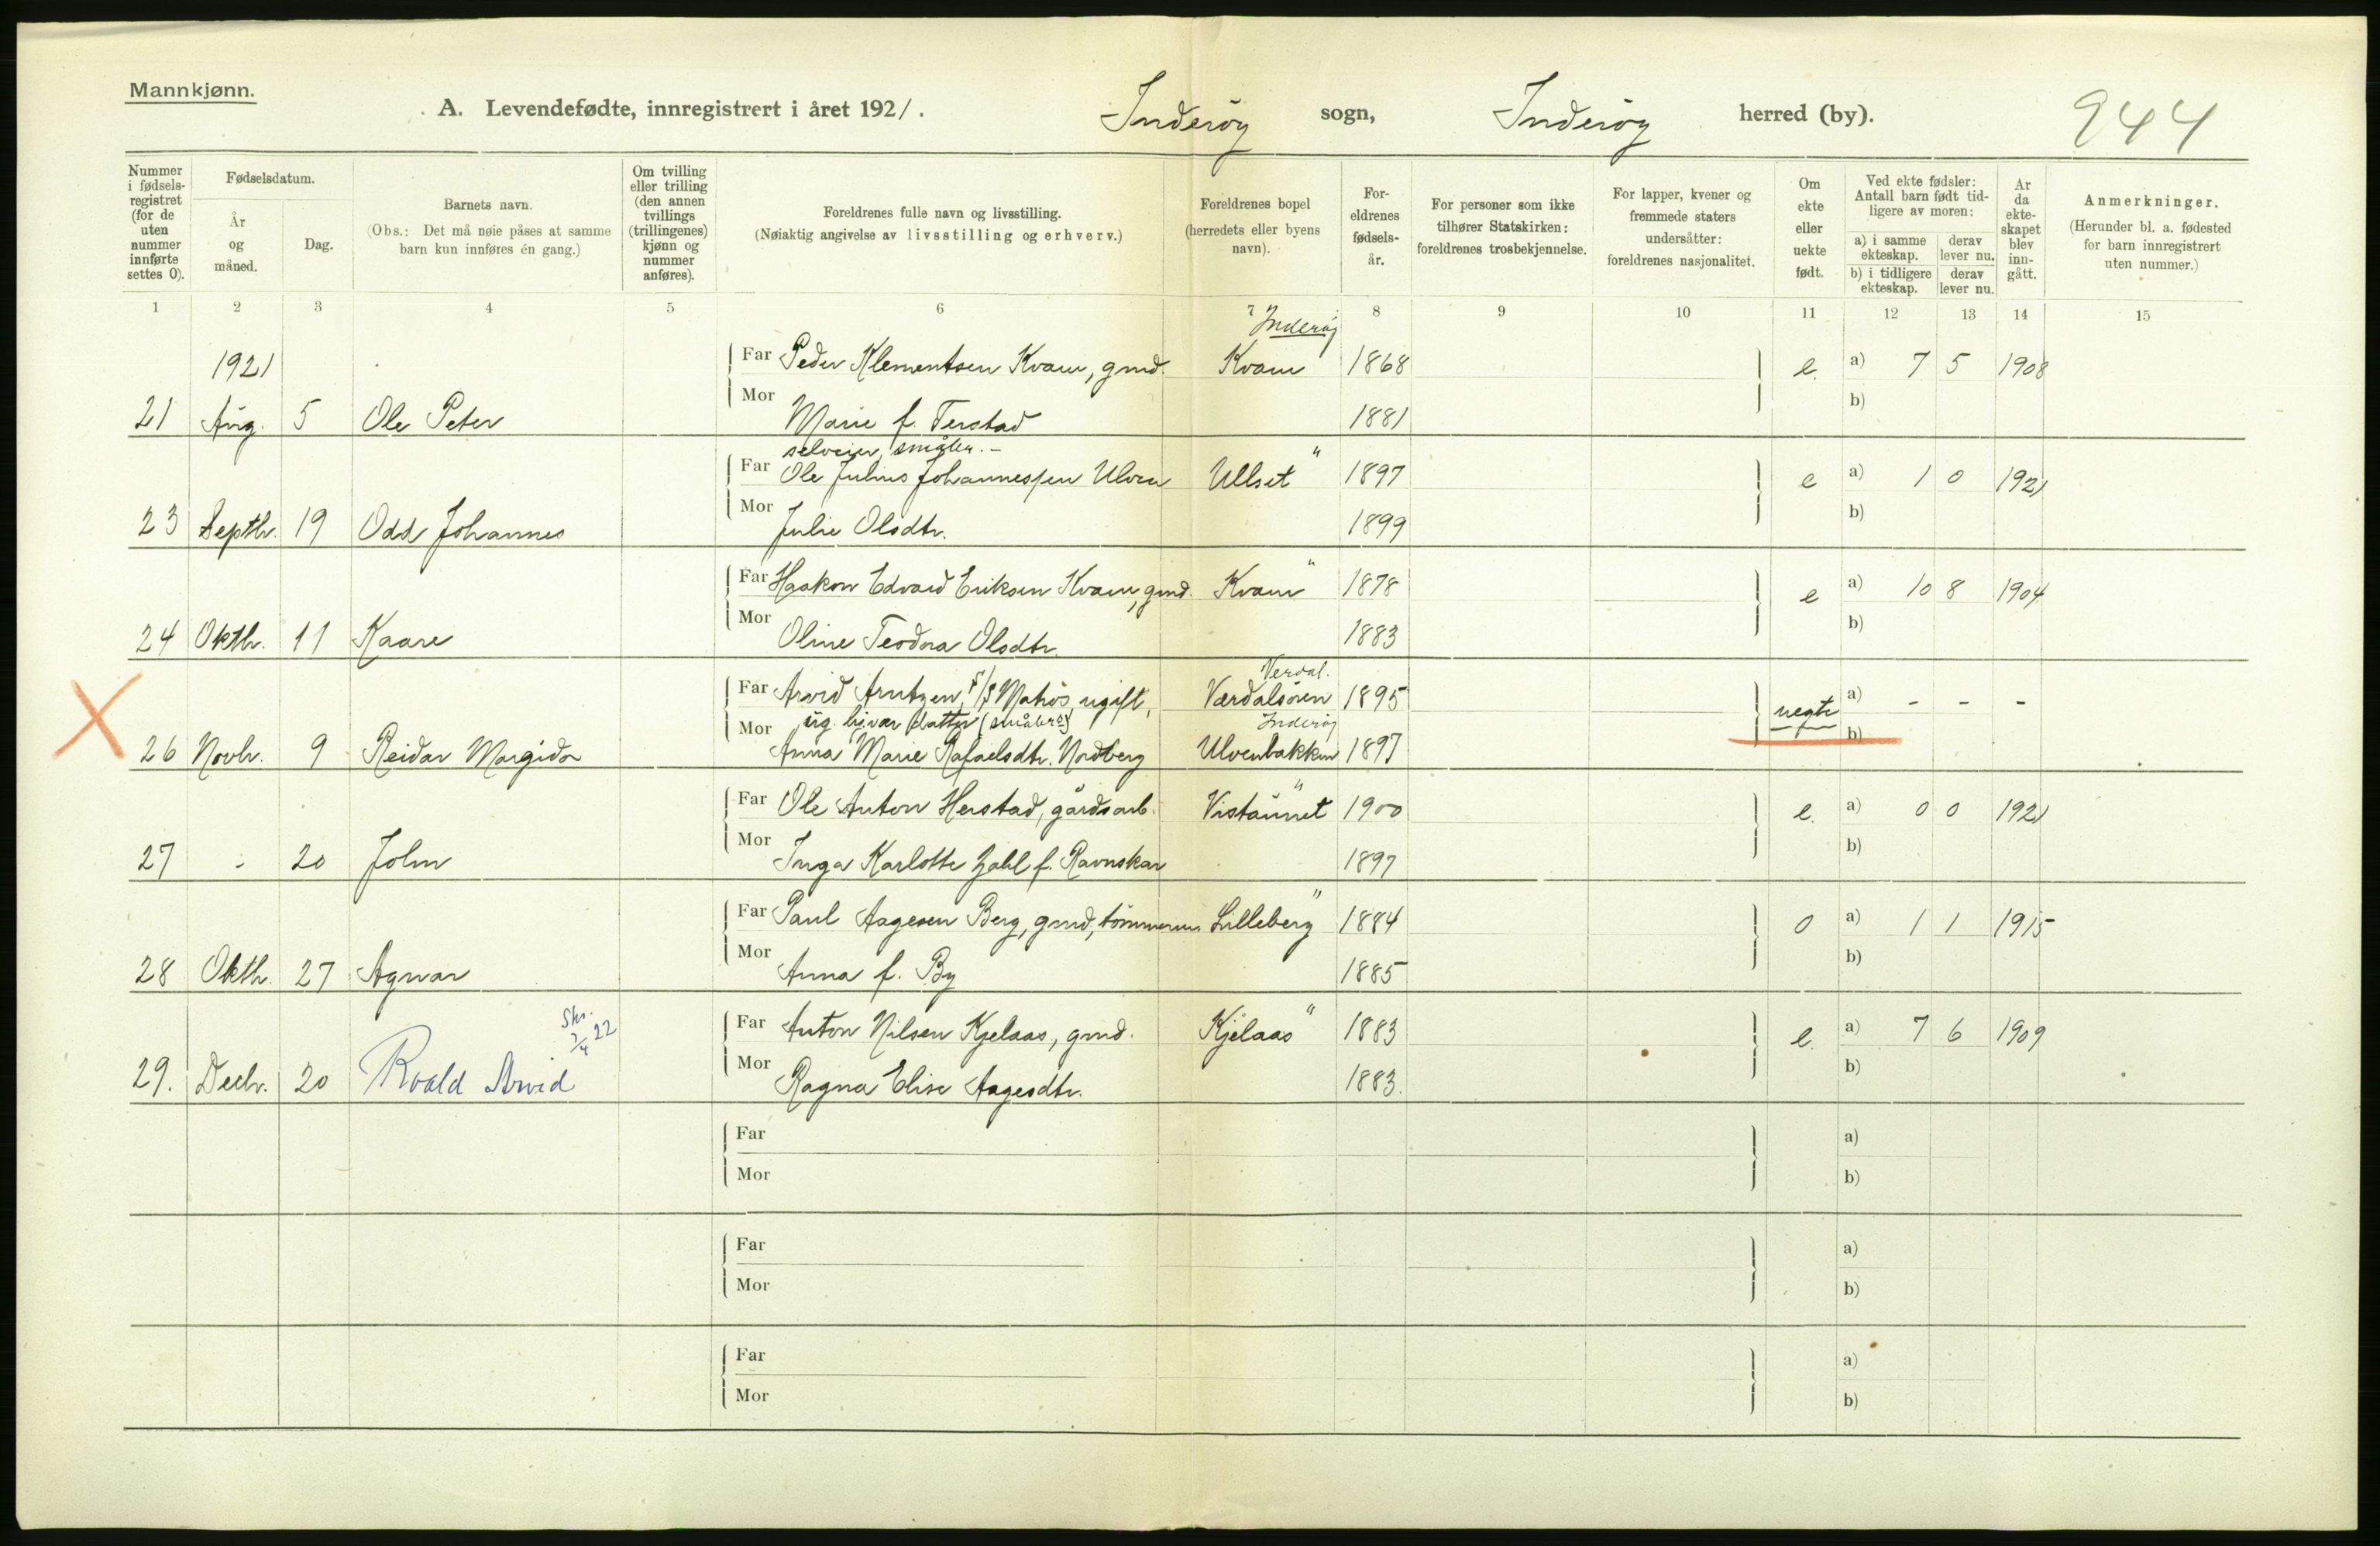 Mannkjønn.
A. Levendefødte, innregistrert i året 1921.
Inderöy sogn,
Inderöy herred (by).
244
Nummer i fødsels-registret (for de uten nummer innførte settes 0).
Fødselsdatum.
År og måned.
Dag.
Barnets navn.
(Obs.: Det må nøie påses at samme barn kun innføres én gang.)
Om tvilling eller trilling (den annen tvillings (trillingenes) kjønn og nummer anføres).
Foreldrenes fulle navn og livsstilling.
(Nøiaktig angivelse av livsstilling og erhverv.)
Foreldrenes bopel (herredets eller byens navn).
For-eldrenes fødsels-år.
For personer som ikke tilhører Statskirken: foreldrenes trosbekjennelse.
For lapper, kvener og fremmede staters undersåtter: foreldrenes nasjonalitet.
Om ekte eller uekte født.
Ved ekte fødsler: Antall barn født tid-ligere av moren:
a) i samme ekteskap.
derav lever nu.
b) i tidligere ekteskap.
derav lever nu.
Ar da ekte-skapet blev inn-gått.
Anmerkninger.
(Herunder bl. a. fødested for barn innregistrert uten nummer.)
1 2 3 4 5 6 7 8 9 10 11 12 13 14 15
Inderöy
1921 Far Peder Klementsen Kvam, grnd. Kvam 1868 e. a) 7 5 1908
21 Aug. 5 Ole Peter Mor Marie f. Terstad 1881 b)
selveier, småbr. -
Far Ole Julius Johannessen Ulven Ullset " 1897 e a) 1 0 1921
23 Septbr. 19 Odd Johannes Mor Julie Olsdtr. 1899 b)
Far Haakon Edvard Eriksen Kvam, grnd. Kvam " 1878 e a) 10 8 1904
24 Oktbr. 11 Kaare Mor Oline Teodora Olsdtr. 1883 b)
Verdal.
Far Arvid Arntzen, Matros, ugift, Værdalsören 1895 uegte a) - - -
ug. hjvær. datter (småbr.) Inderöy
26 Novbr. 9 Reidar Margido Mor Anna Marie Rafaelsdtr. Nordberg Ulvenbakken 1897 b)
Far Ole Anton Herstad, gårdsarb. Vistaunet " 1900 e. a) 0 0 1921
27 - 20 John Mor Inga Karlotte f. Ravnskar 1897 b)
Far Paul Aagesen Berg, grnd, tömmerm. Lilleberg " 1884 0 a) 1 1 1915
28 Oktbr. 27 Agnar Mor Anna f. By 1885 b)
Far Anton Nilsen Kjelaas, grnd. Kjelaas " 1883 e. a) 7 6 1909
Skr. 3/4 22
29. Decbr. 20 Roald Arvid Mor Ragna Elise Aagesdtr. 1883. b)
Far a)
Mor b)
Far a)
Mor b)
Far a)
Mor b)